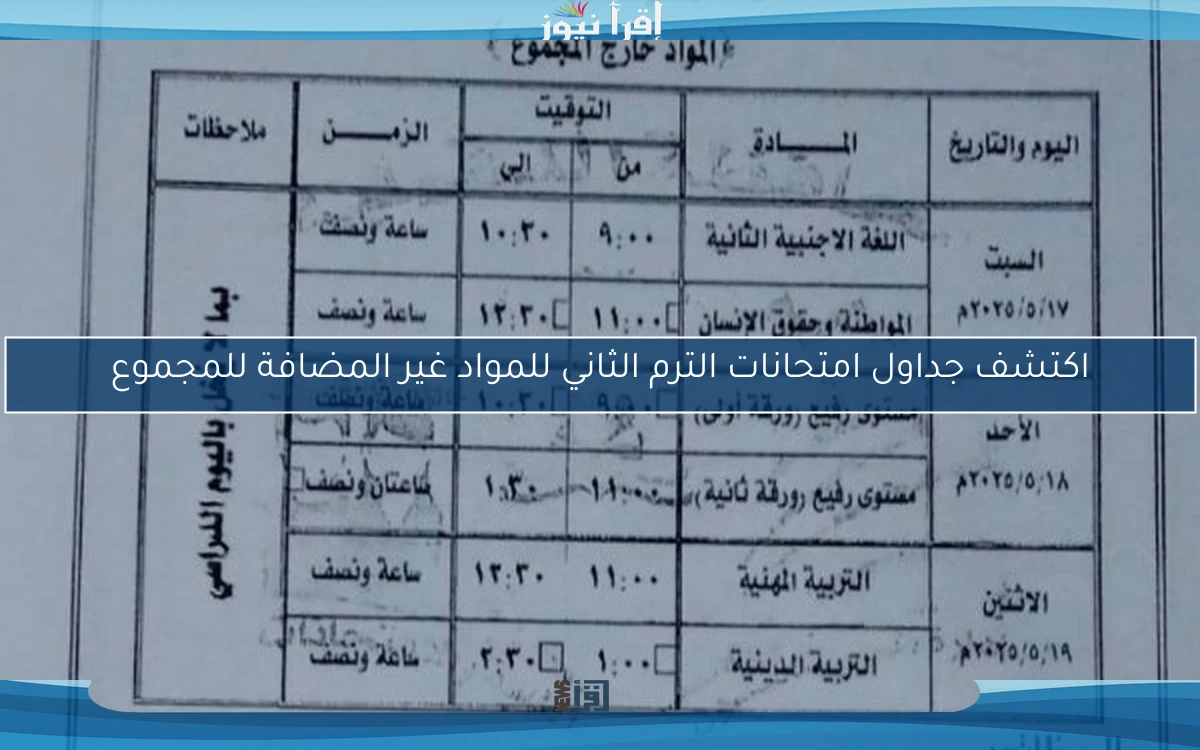 إقرأ نيوز
﴿المواد خارج المجموع﴾
اليوم والتاريخ المــــــادة التوقيت الزمـــــن ملاحظات
من إلى
السبت ٢٠٢٥/٥/١٧م
اللغة الاجنبية الثانية ٩:٠٠ ١٠:٣٠ ساعة ونصف
المواطنة وحقوق الإنسان ١١:٠٠ ١٢:٣٠ ساعة ونصف
اكتشف جداول امتحانات الترم الثاني للمواد غير المضافة للمجموع
الأحد ٢٠٢٥/٥/١٨م
مستوى رفيع (ورقة أولى) ٩:٠٠ ١٠:٣٠ ساعة ونصف
مستوى رفيع (ورقة ثانية) ١١:٠٠ ١:٣٠ ساعتان ونصف
الاثنين ٢٠٢٥/٥/١٩م
التربية المهنية ١١:٠٠ ١٢:٣٠ ساعة ونصف
التربية الدينية ١:٠٠ ٢:٣٠ ساعة ونصف
بما لا باليوم الدراسي
إقرأ NEWS